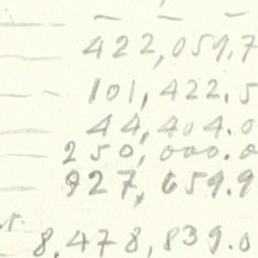 422,059.7
101,422.5
44,404.0
250,000.0
927,659.9
8,478,839.0